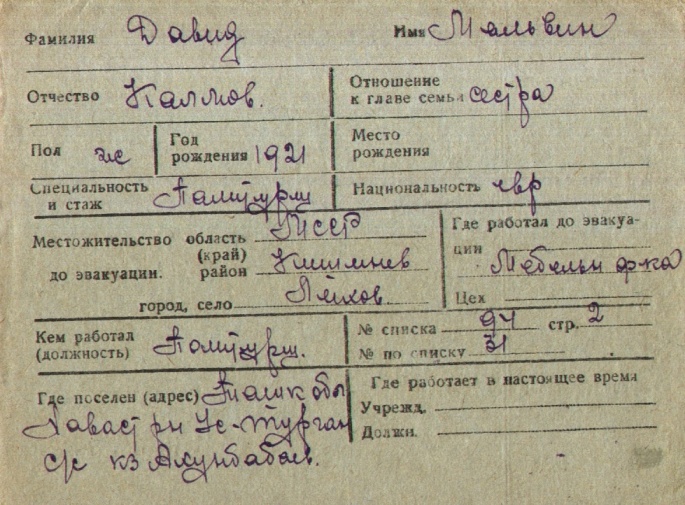 Фамилия Давид Имя Мальвин
Отчество Калмов. Отношение к главе семьи сестра
Пол ж Год рождения 1921 Место рождения
Специальность и стаж Национальность евр
Местожительство область (край)
до эвакуации. район Кишинев
город, село
Где работал до эвакуации Мебельн ф-ка
Цех
Кем работал (должность)
№ списка 94 стр. 2
№ по списку 31
Где поселен (адрес) Ташк обл
Хаваст рн Ус-Турган
с/с кз Ахунбабаев.
Где работает в настоящее время
Учрежд.
Должн.